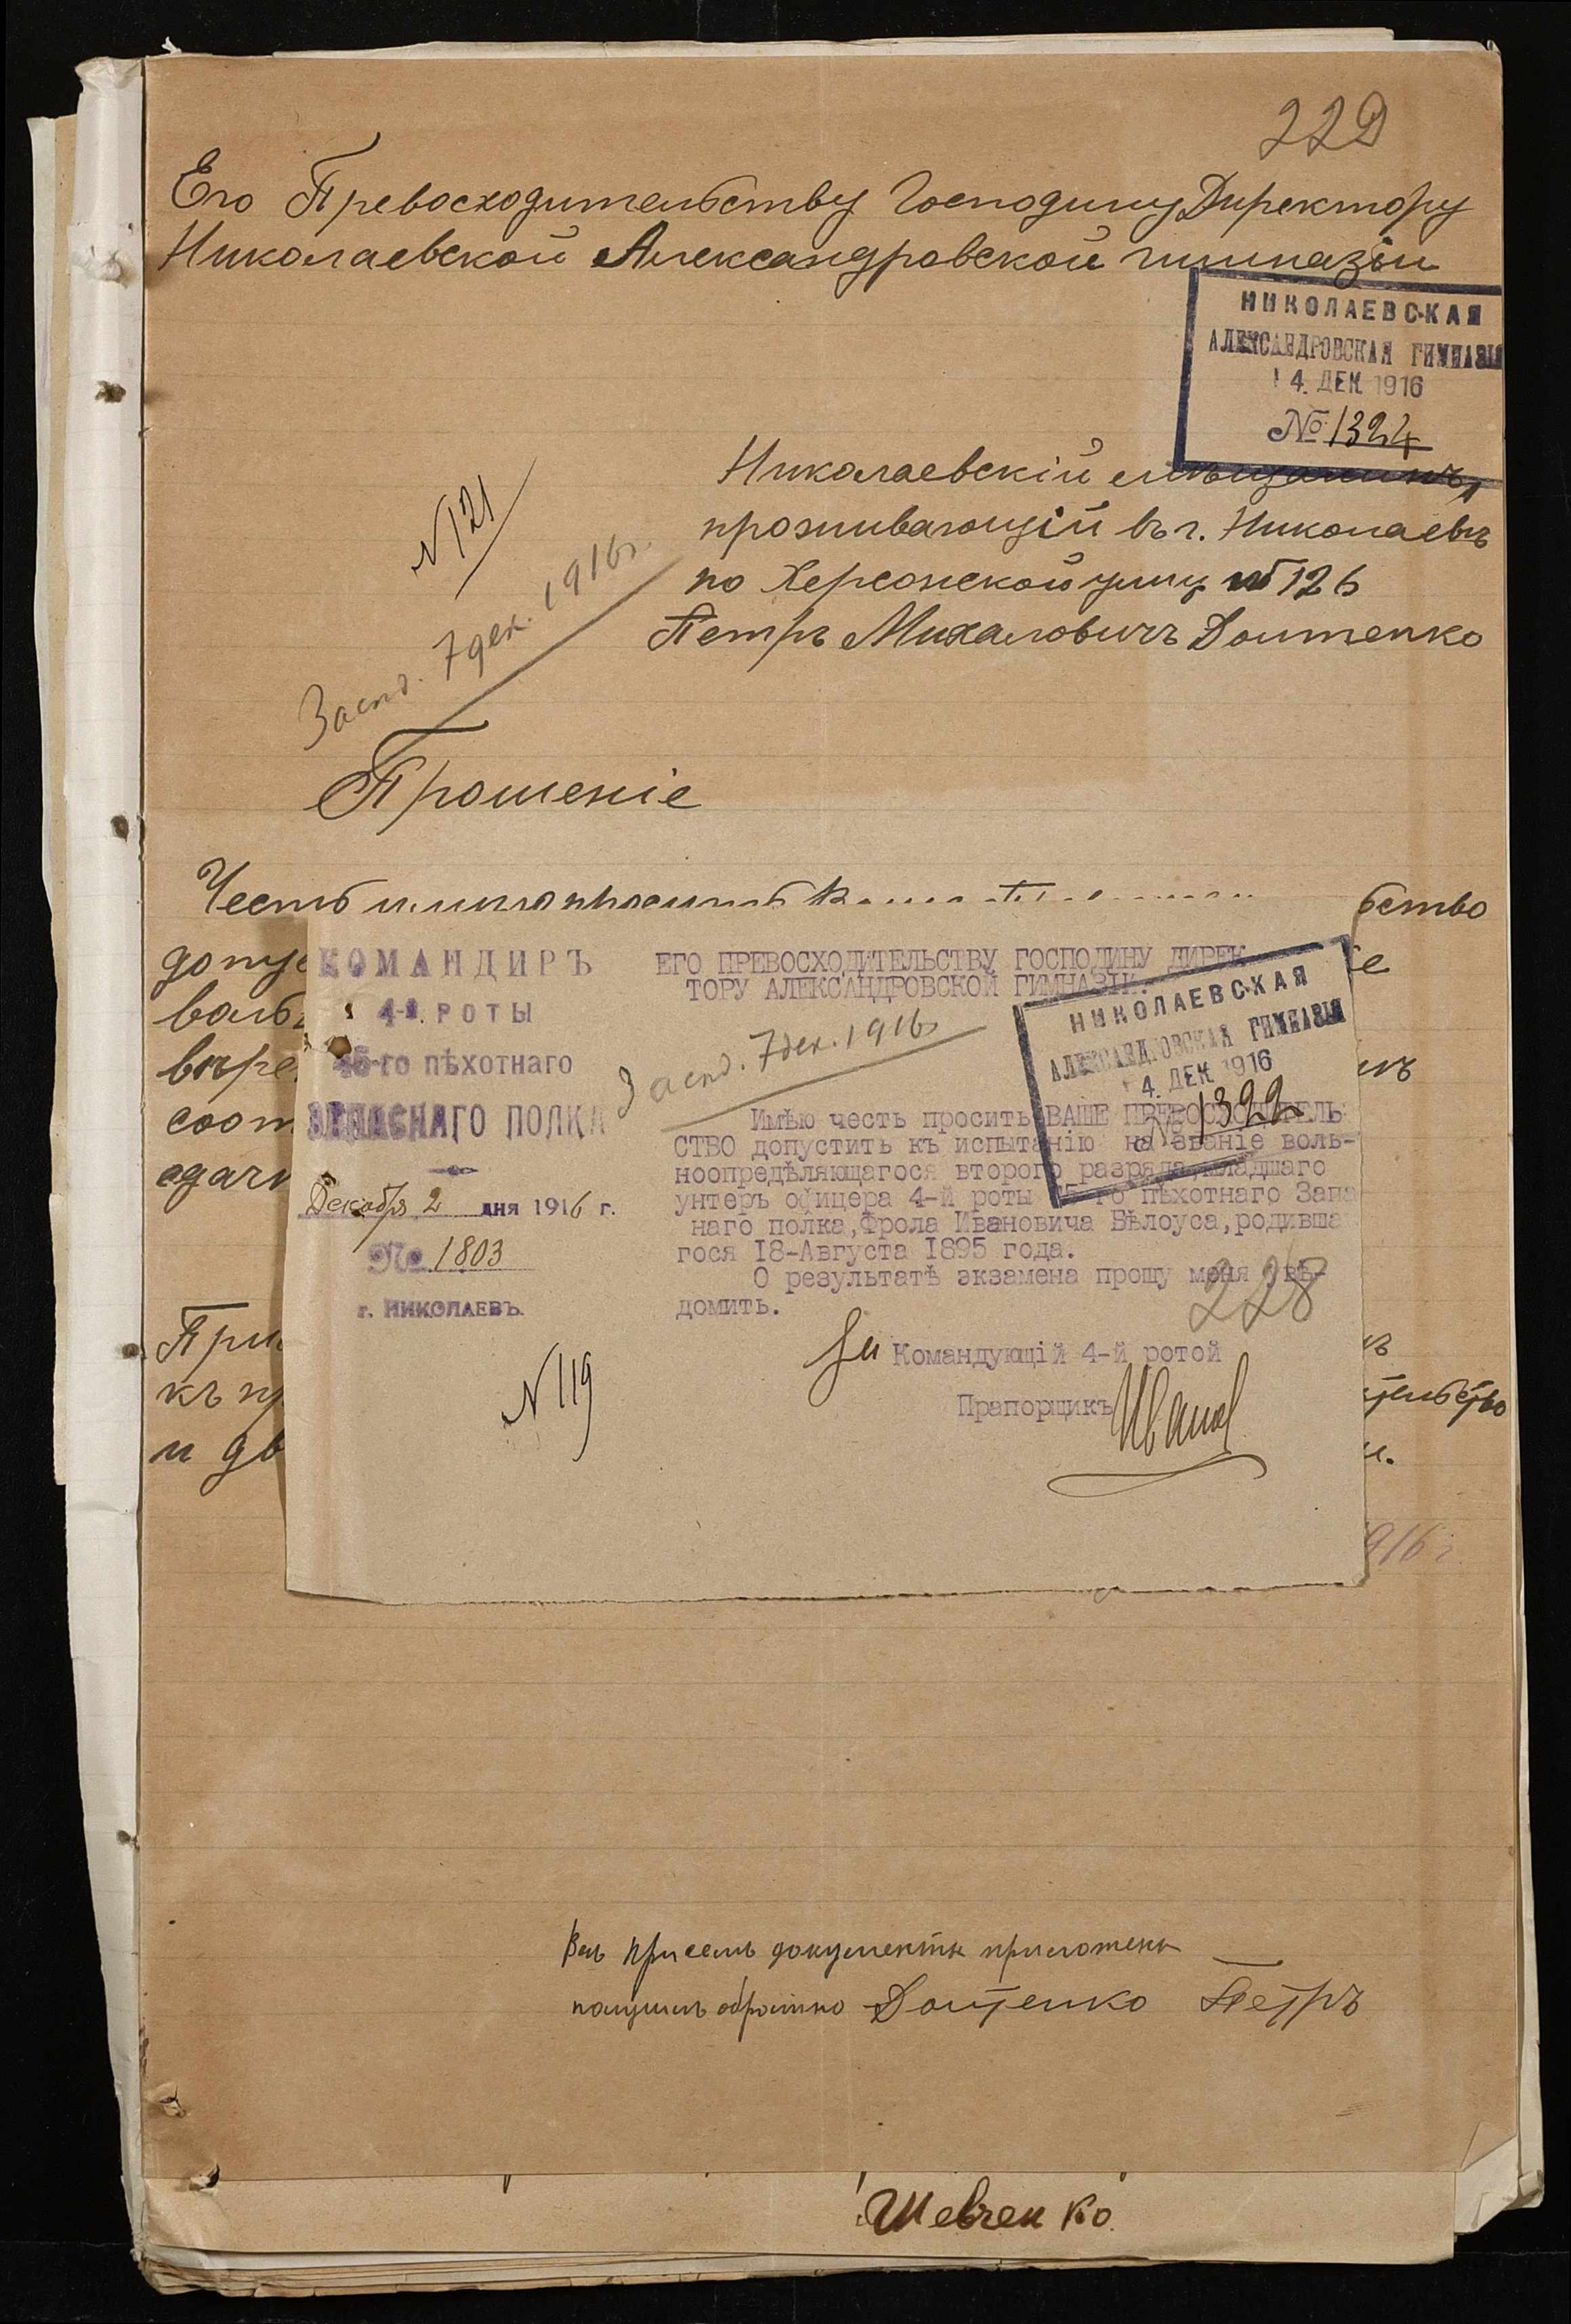 229
Его Превосходительству Господину Директору
Николаевской Александровской гимназіи
НИКОЛАЕВСКАЯ
АЛЕКСАНДРОВСКАЯ ГИМНАЗІЯ
4. ДЕК 1916
№ 1324
Николаевскій мѣщанинъ,
проживающій въ г. Николаевѣ
по Херсонской улиц № 126
Петръ Михаловичъ Доитенко
№ 121
7 дек. 1916 г.
Прошеніе
Честь имѣю просить
бство
допус
валь
соот
сдачи
При
къ пр
и дв
916 г.
КОМАНДИРЪ
4-й РОТЫ
45-го пѣхотнаго
ЗАПАСНАГО ПОЛКА
Декабря 2 дня 1916 г.
№ 1803
г. НИКОЛАЕВЪ.
№ 119
ЕГО ПРЕВОСХОДИТЕЛЬСТВУ ГОСПОДИНУ ДИРЕК
ТОРУ АЛЕКСАНДРОВСКОЙ ГИМНАЗІИ.
НИКОЛАЕВСКАЯ
АЛЕКСАНДРОВСКАЯ ГИМНАЗІЯ
4. ДЕК 1916
1322
7 дек. 1916
Имѣю честь просить ВАШЕ ПРЕВОСХОДИТЕЛЬ
СТВО допустить къ испытанію на званіе воль-
ноопредѣляющагося второго разряда, младшаго
унтеръ офицера 4-й роты го пѣхотнаго Запа
наго полка, Фрола Ивановича Бѣлоуса, родивша
гося 18-Августа 1895 года.
О результатѣ экзамена прошу меня увѣ-
домить.
228
Командующій 4-й ротой
Прапорщикъ Иванов
Всѣ при семъ документы приложены
получилъ обратно Доитенко Петръ
Шевченко.